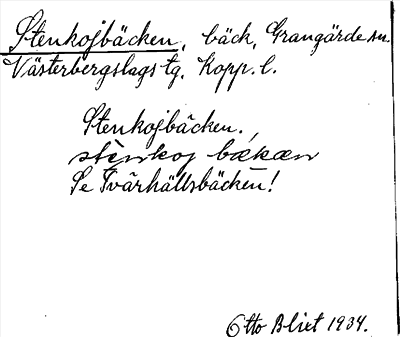 Stenkojbäcken, bäck, Grangärde sn.
Västerbergslags tg. Kopp. l.
Stenkojbäcken.
stènkoj bækæn
Se Tvärhällsbäcken!
Otto Blixt 1934.